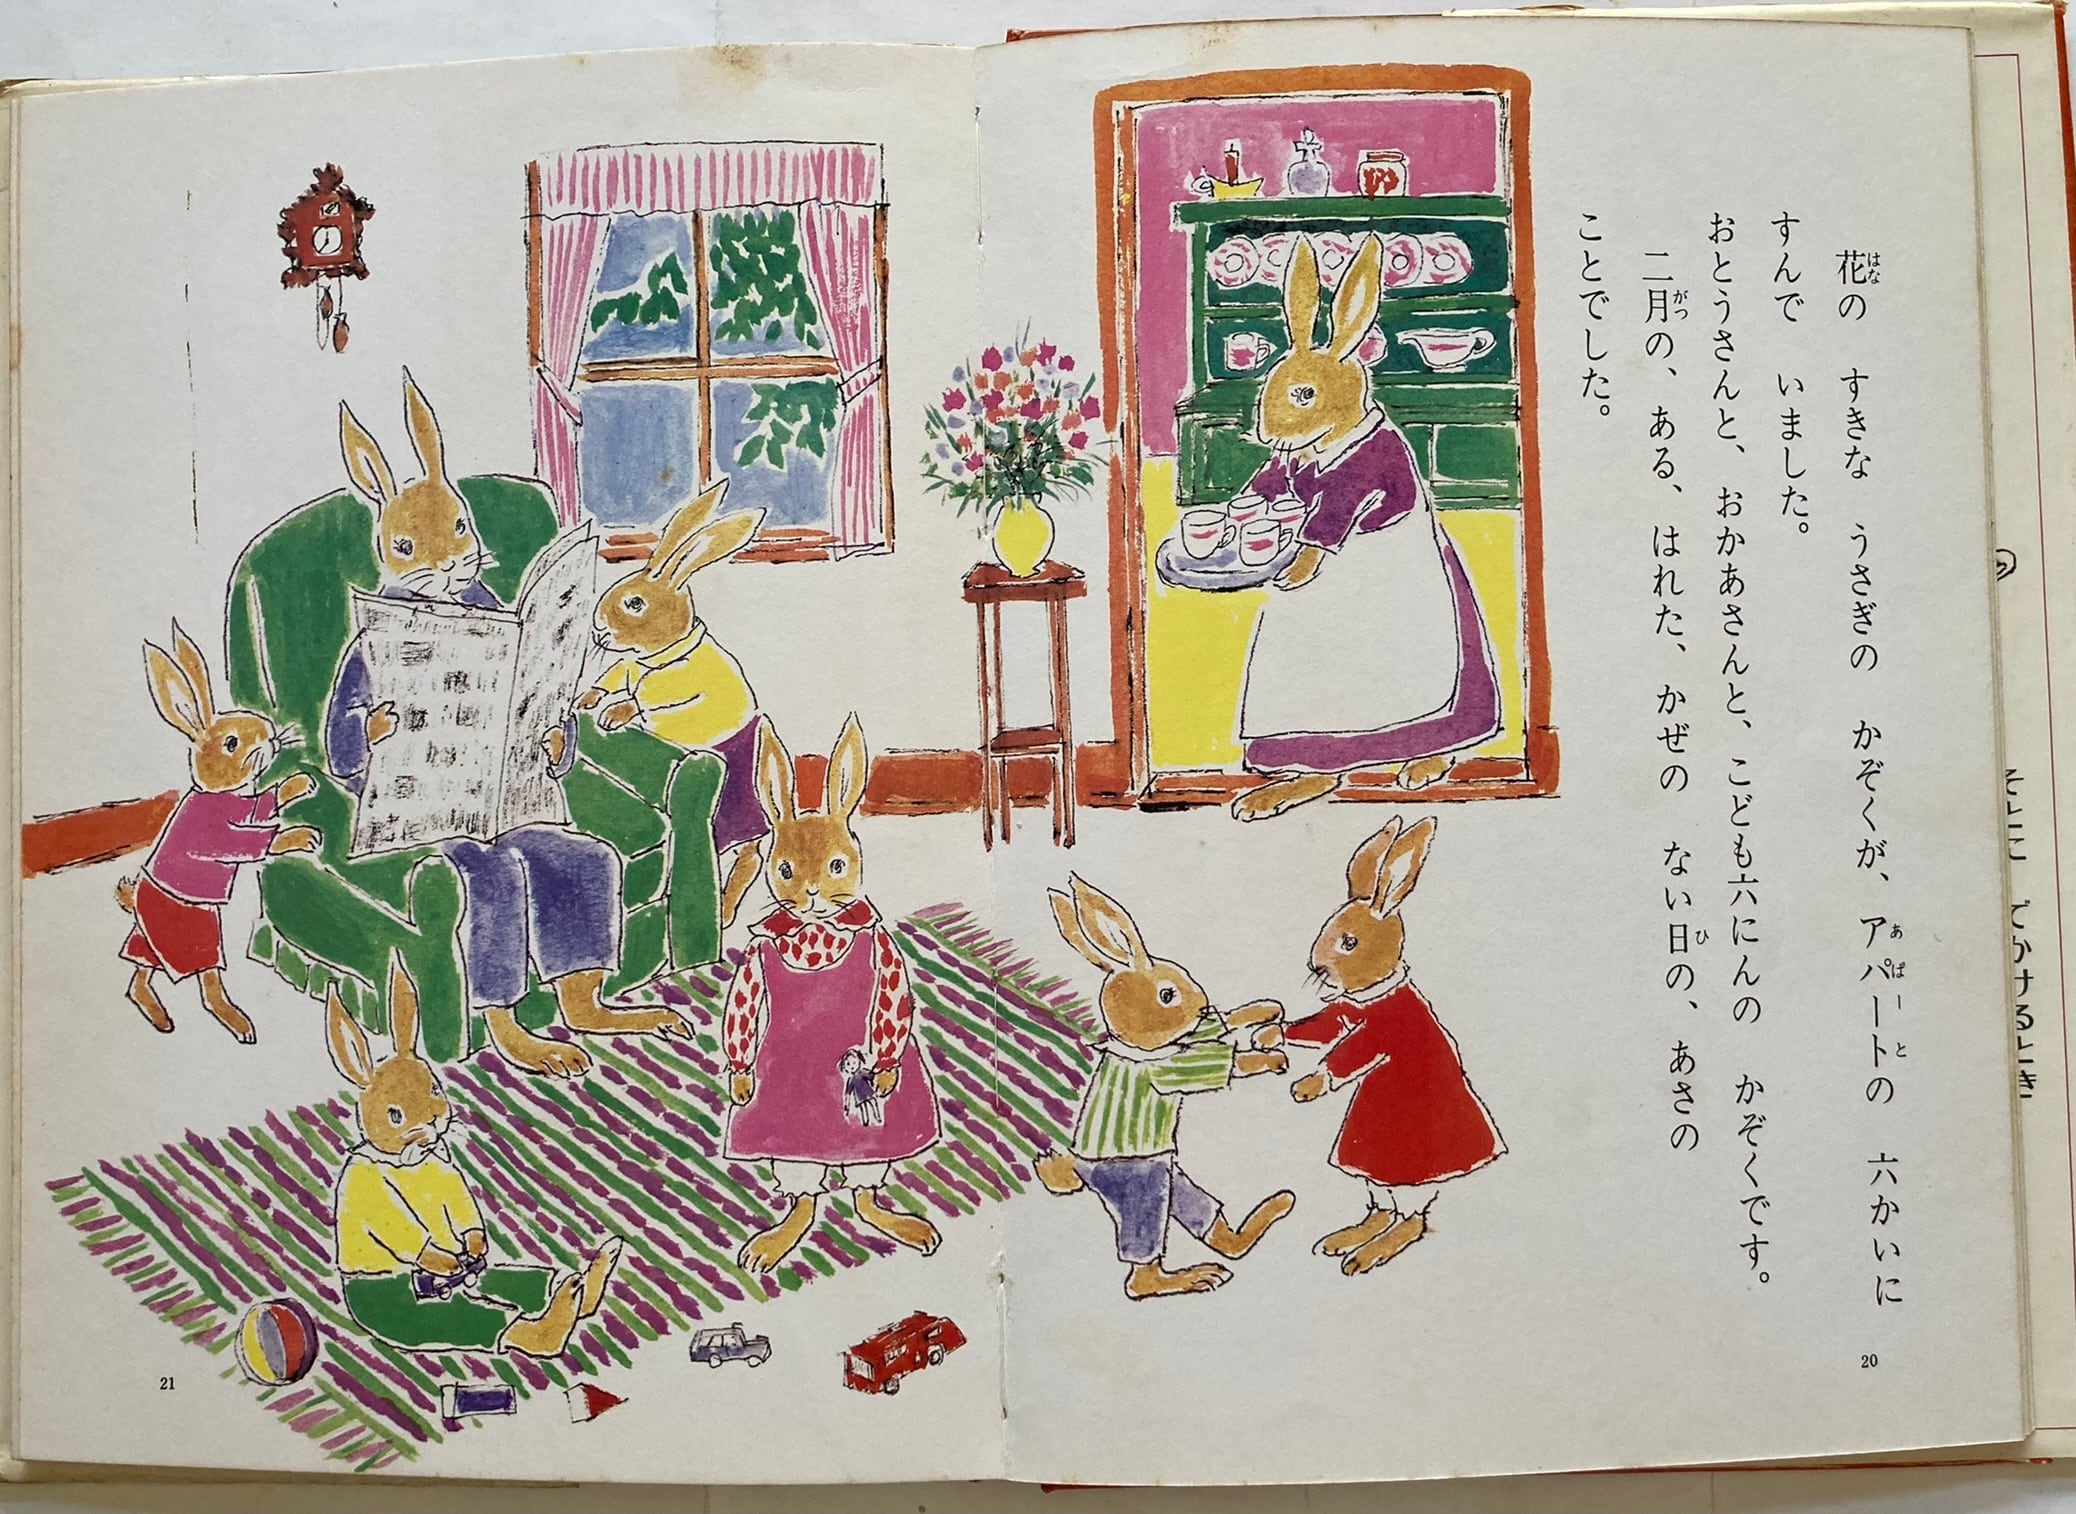 花の　すきな　うさぎの　かぞくが、アパートの　六かいに
すんで　いました。
おとうさんと、おかあさんと、こども六にんの　かぞくです。
二月の、ある、はれた、かぜの　ない日の、あさの
ことでした。
はな
あぱーと
がつ
ひ
20
21
でかけるとき